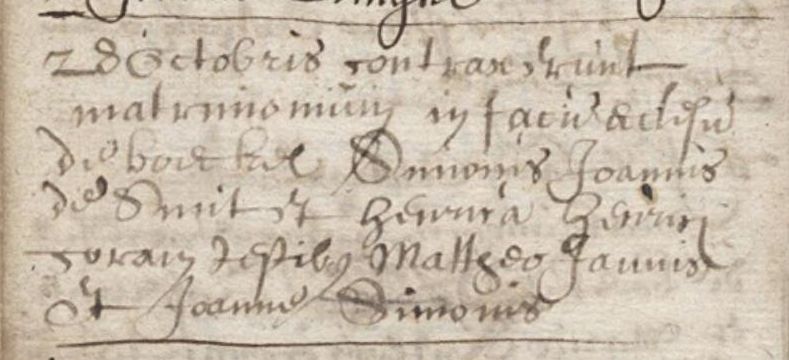 28 Octobris contraxerunt
matrimonium in facie ecclesie
de Boeckel Simonis Joannis
de Smit et Henrica Henrici
coram testibus Mattheo Jannis
et Joanne Simonis